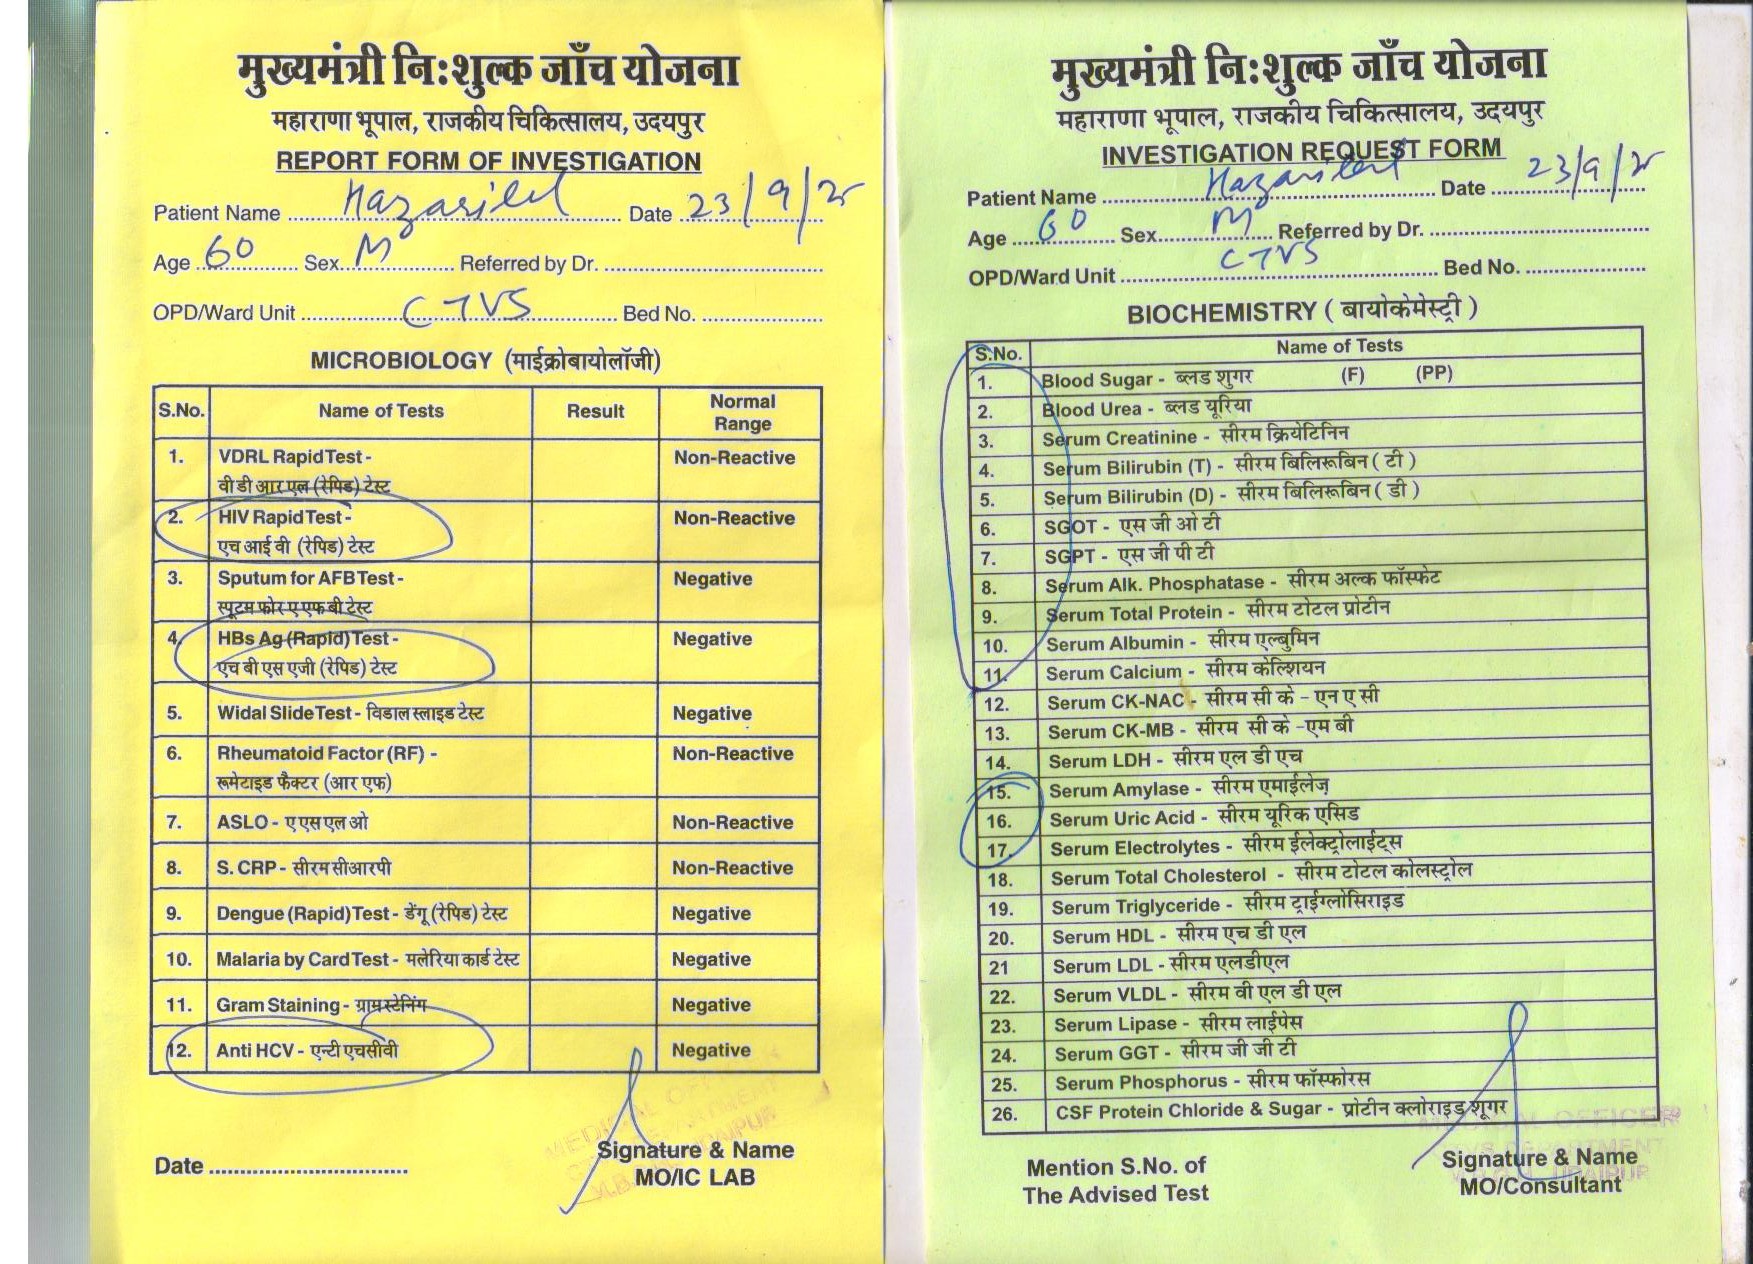 मुख्यमंत्री निःशुल्क जाँच योजना
महाराणा भूपाल, राजकीय चिकित्सालय, उदयपुर
REPORT FORM OF INVESTIGATION
Patient Name Hazarilal Date 23/9/25
Age 60 Sex M Referred by Dr.
OPD/Ward Unit CTVS Bed No.
MICROBIOLOGY (माईक्रोबायोलॉजी)
S.No. Name of Tests Result Normal Range
1. VDRL Rapid Test - Non-Reactive
वी डी आर एल (रेपिड) टेस्ट
2. HIV Rapid Test - Non-Reactive
एच आई वी (रेपिड) टेस्ट
3. Sputum for AFB Test - Negative
स्पूटम फोर ए एफ बी टेस्ट
4. HBs Ag (Rapid) Test - Negative
एच बी एस एजी (रेपिड) टेस्ट
5. Widal Slide Test - विडाल स्लाइड टेस्ट Negative
6. Rheumatoid Factor (RF) - Non-Reactive
रूमेटाइड फैक्टर (आर एफ)
7. ASLO - ए एस एल ओ Non-Reactive
8. S. CRP - सीरम सीआरपी Non-Reactive
9. Dengue (Rapid) Test - डेंगू (रेपिड) टेस्ट Negative
10. Malaria by Card Test - मलेरिया कार्ड टेस्ट Negative
11. Gram Staining - ग्राम स्टेनिंग Negative
12. Anti HCV - एन्टी एचसीवी Negative
MEDICAL OFFICER
Signature & Name
Date MO/IC LAB
मुख्यमंत्री निःशुल्क जाँच योजना
महाराणा भूपाल, राजकीय चिकित्सालय, उदयपुर
INVESTIGATION REQUEST FORM
Patient Name Hazarilal Date 23/9/25
Age 60 Sex M Referred by Dr.
OPD/Ward Unit CTVS Bed No.
BIOCHEMISTRY ( बायोकेमेस्ट्री )
S.No. Name of Tests
1. Blood Sugar - ब्लड शुगर (F) (PP)
2. Blood Urea - ब्लड यूरिया
3. Serum Creatinine - सीरम क्रियेटिनिन
4. Serum Bilirubin (T) - सीरम बिलिरूबिन ( टी )
5. Serum Bilirubin (D) - सीरम बिलिरूबिन ( डी )
6. SGOT - एस जी ओ टी
7. SGPT - एस जी पी टी
8. Serum Alk. Phosphatase - सीरम अल्क फॉस्फेट
9. Serum Total Protein - सीरम टोटल प्रोटीन
10. Serum Albumin - सीरम एल्बुमिन
11. Serum Calcium - सीरम केल्शियन
12. Serum CK-NAC - सीरम सी के - एन ए सी
13. Serum CK-MB - सीरम सी के -एम बी
14. Serum LDH - सीरम एल डी एच
15. Serum Amylase - सीरम एमाईलेज़
16. Serum Uric Acid - सीरम यूरिक एसिड
17. Serum Electrolytes - सीरम ईलेक्ट्रोलाईट्स
18. Serum Total Cholesterol - सीरम टोटल कोलस्ट्रोल
19. Serum Triglyceride - सीरम ट्राईग्लोसिराइड
20. Serum HDL - सीरम एच डी एल
21 Serum LDL - सीरम एलडीएल
22. Serum VLDL - सीरम वी एल डी एल
23. Serum Lipase - सीरम लाईपेस
24. Serum GGT - सीरम जी जी टी
25. Serum Phosphorus - सीरम फॉस्फोरस
26. CSF Protein Chloride & Sugar - प्रोटीन क्लोराइड शूगर
MEDICAL OFFICER
DEPARTMENT
UDAIPUR
Mention S.No. of Signature & Name
The Advised Test MO/Consultant